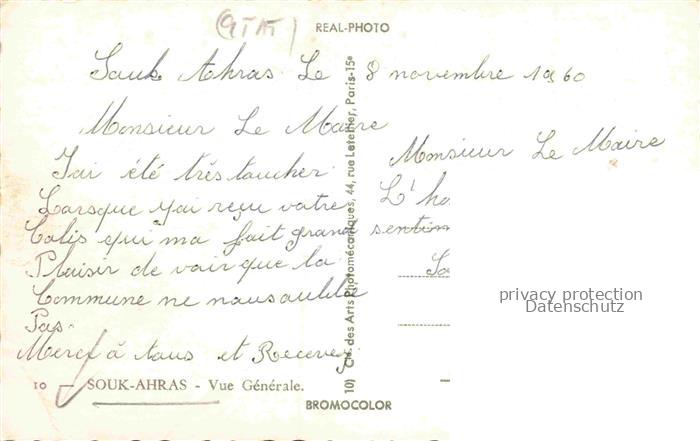 (GTAT)
REAL-PHOTO
Souk Ahras Le 8 novembre 1960
Monsieur Le Maire
J'ai été très toucher
Lorsque j'ai reçu votre
Colis qui ma fait grand
Plaisir de voir que la
Commune ne nous oublie
Pas.
Merci à tous et Recevez
Monsieur Le Maire
L'ho
sentim
So
privacy protection
Datenschutz
10) Cie des Arts Photomécaniques, 44, rue Letellier, Paris-15e
10 — SOUK-AHRAS - Vue Générale.
BROMOCOLOR